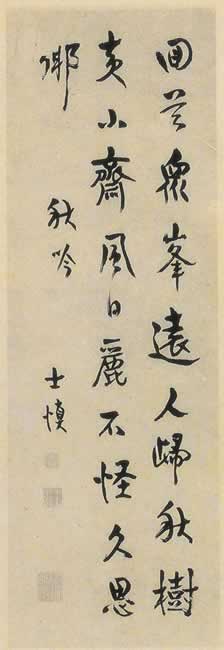 回首衆峯遠人歸秋樹
黃小齋風日麗不怪久思
鄉
秋吟
士慎